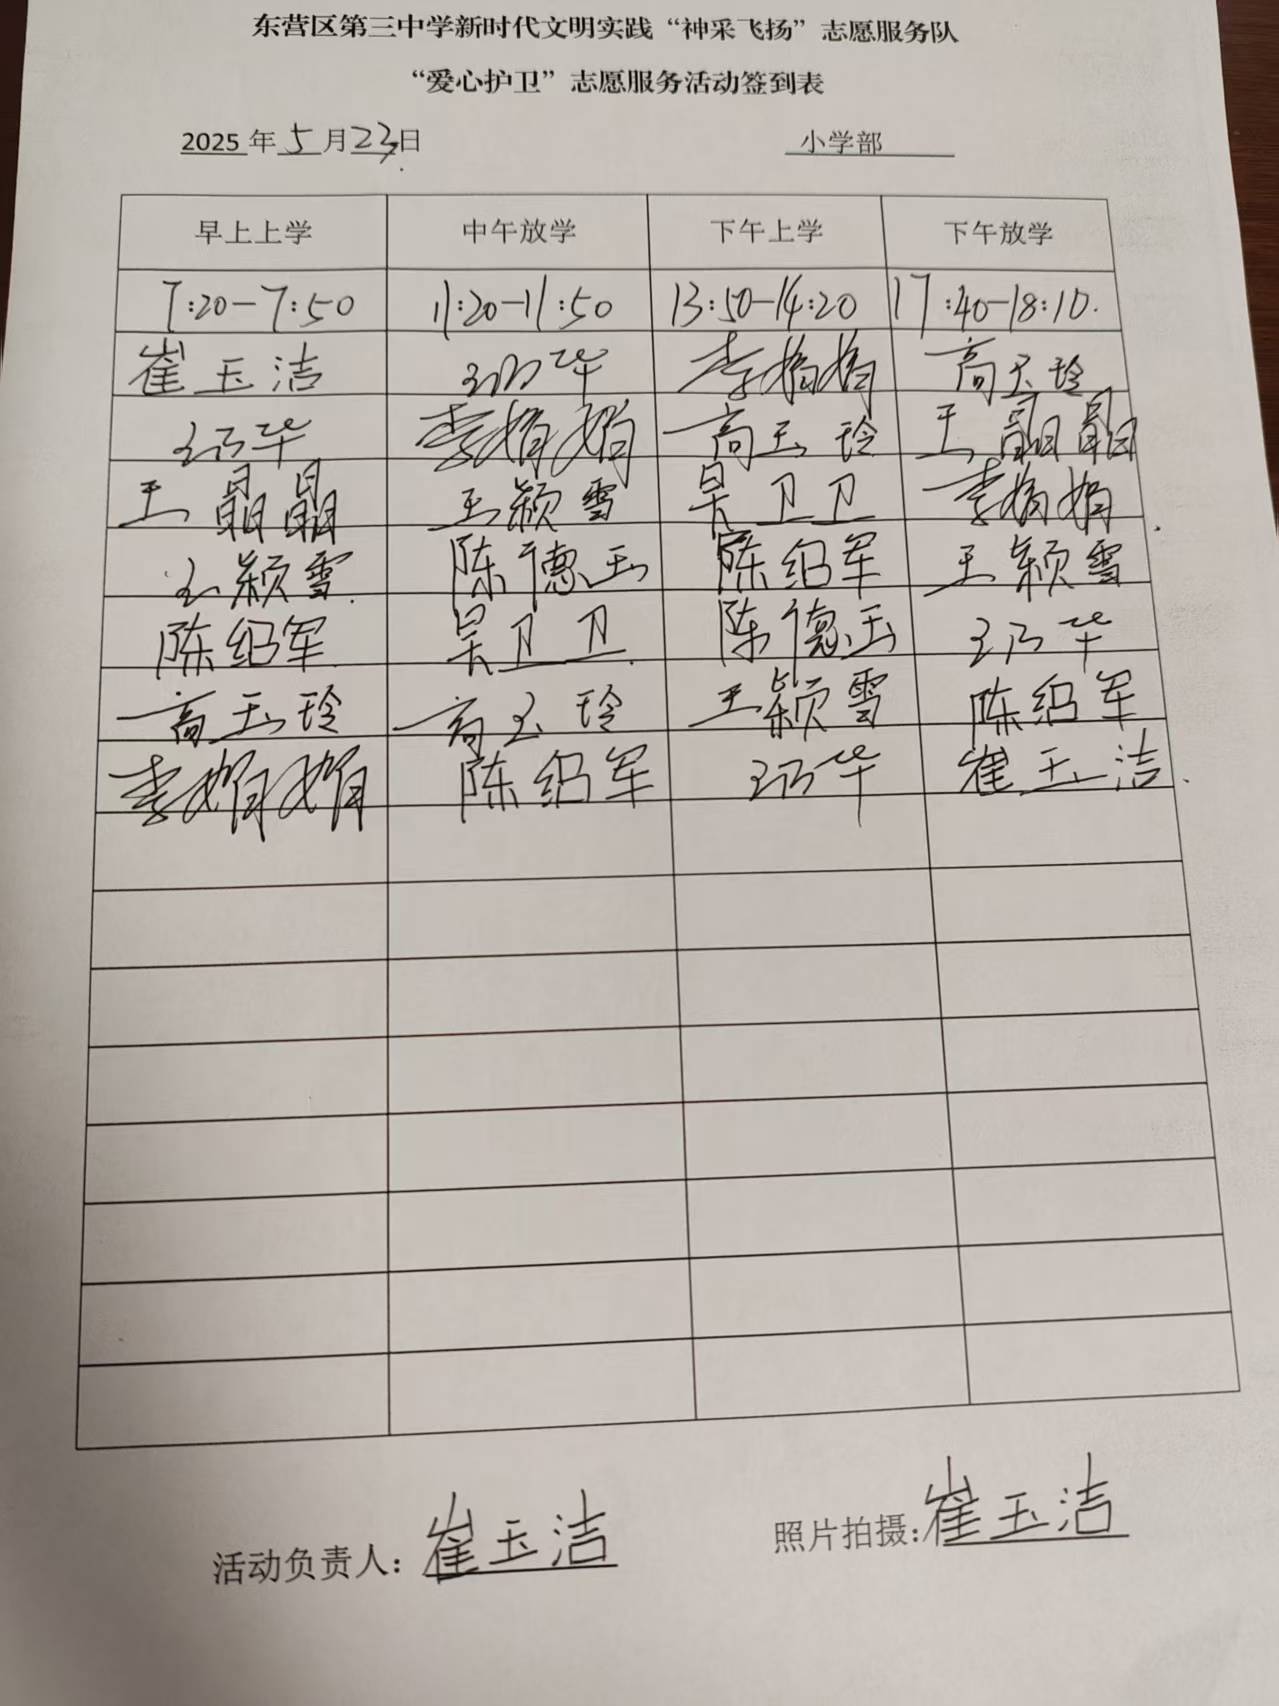 东营区第三中学新时代文明实践“神采飞扬”志愿服务队
“爱心护卫”志愿服务活动签到表
2025年5月23日 小学部
早上上学 中午放学 下午上学 下午放学
7:20-7:50 11:20-11:50 13:50-14:20 17:40-18:10.
崔玉洁 李娟娟 高玉玲
李娟娟 高玉玲 王晶晶
王晶晶 王颖雪 吴卫卫 李娟娟
王颖雪 陈德玉 陈绍军 王颖雪
陈绍军 吴卫卫 陈德玉
高玉玲 高玉玲 王颖雪 陈绍军
李娟娟 陈绍军 崔玉洁
活动负责人：崔玉洁 照片拍摄:崔玉洁